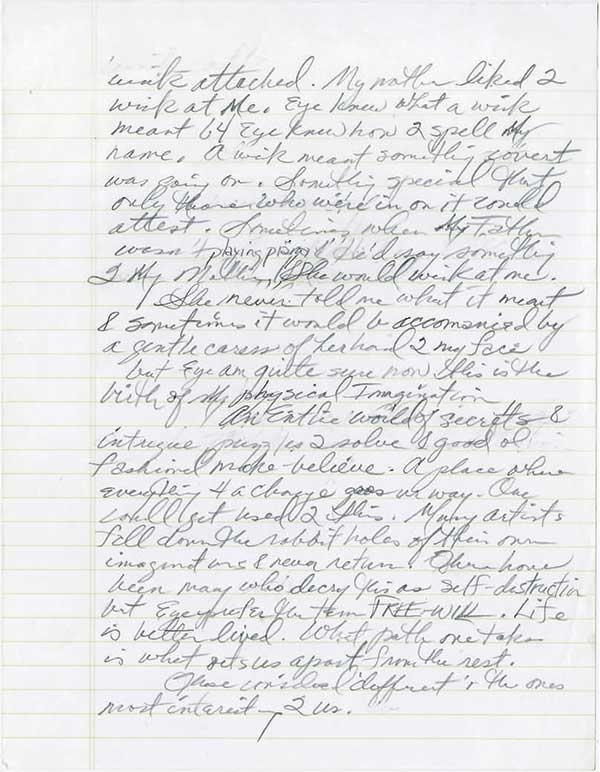 wink attached. My mother liked 2
wink at Me. Eye knew what a wink
meant b4 Eye knew how 2 spell My
name. A wink meant something covert
was going on. Something special that
only those who were in on it could
attest. Sometimes when My Father
wasn't playing piano he'd say something
2 My Mother & she would wink at me.
She never told me what it meant
& sometimes it would be accompanied by
a gentle caress of her hand 2 my face
but Eye am quite sure now this is the
birth of My physical Imagination
An Entire world of secrets &
intrigue puzzles 2 solve & good ol
fashioned make-believe. A place where
everything 4 a change goes ur way. One
could get used 2 this. Many artists
fall down the rabbit holes of their own
imaginations & never return. There have
been many who decry this as self-destruction
but Eye prefer the term FREE-WILL. Life
is better lived. What path one takes
is what sets us apart from the rest.
Those considered "different" r the ones
most interesting 2 us.